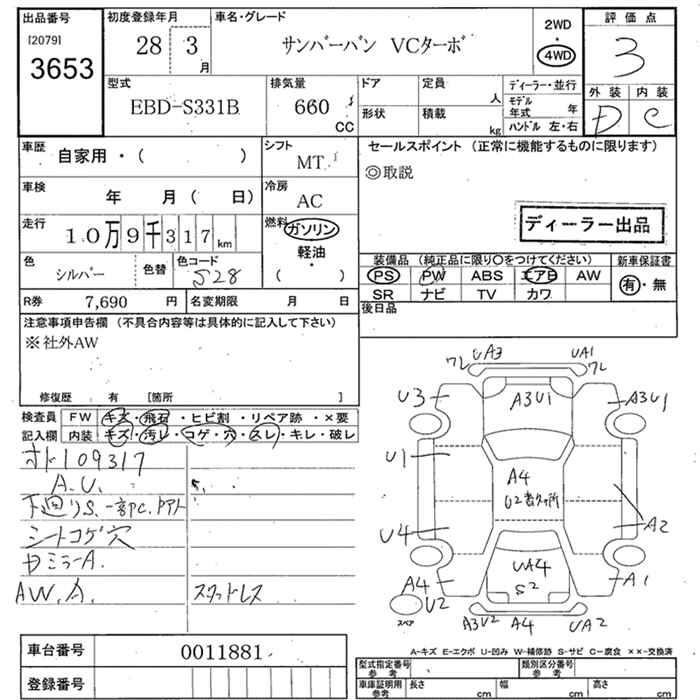 出品番号
[2079]
3653
初度登録年月
28 3
月
車名・グレード
サンバーバン VCターボ
2WD
・
4WD
評価点
3
外装 内装
D C
型式
EBD-S331B
排気量
660
CC
ドア
形状
定員
人
積載
kg
ディーラー・並行
モデル
年式 年
ハンドル 左・右
車歴
自家用・( )
シフト
MT
車検
年 月( 日)
冷房
AC
走行
10万9千317km
燃料
ガソリン
軽油・
( )
色
シルバー
色替
色コード
S28
R券 7,690 円
名変期限 月 日
セールスポイント (正常に機能するものに限ります)
◎取説
ディーラー出品
装備品 (純正品に限り〇をつけてください)
PS PW ABS エアB AW
SR ナビ TV カワ
新車保証書
有・無
後日品
注意事項申告欄 (不具合内容等は具体的に記入して下さい)
※社外AW
修復歴 有 [箇所 ]
検査員
記入欄
FW キズ・飛石・ヒビ割・リペア跡・×要
内装 キズ・汚レ・コゲ・穴・スレ・キレ・破レ
オド109317
A.U.
下廻りS.一部PC.
シートコゲ穴
AW.A. スタッドレス
車台番号 0011881
登録番号
UA3 UA1
フレ フレ
U3 A3U1 A3U1
U1
A4
U2
U4 A2
A4 UA4 A1
U2 S2
スペア
A3U2 A4 UA2
A-キズ E-エクボ U-凹み W-補修跡 S-サビ C-腐食 ××-交換済
型式指定番号
参考
類別区分番号
参考
車庫証明用
参考
長さ cm 幅 cm 高さ cm